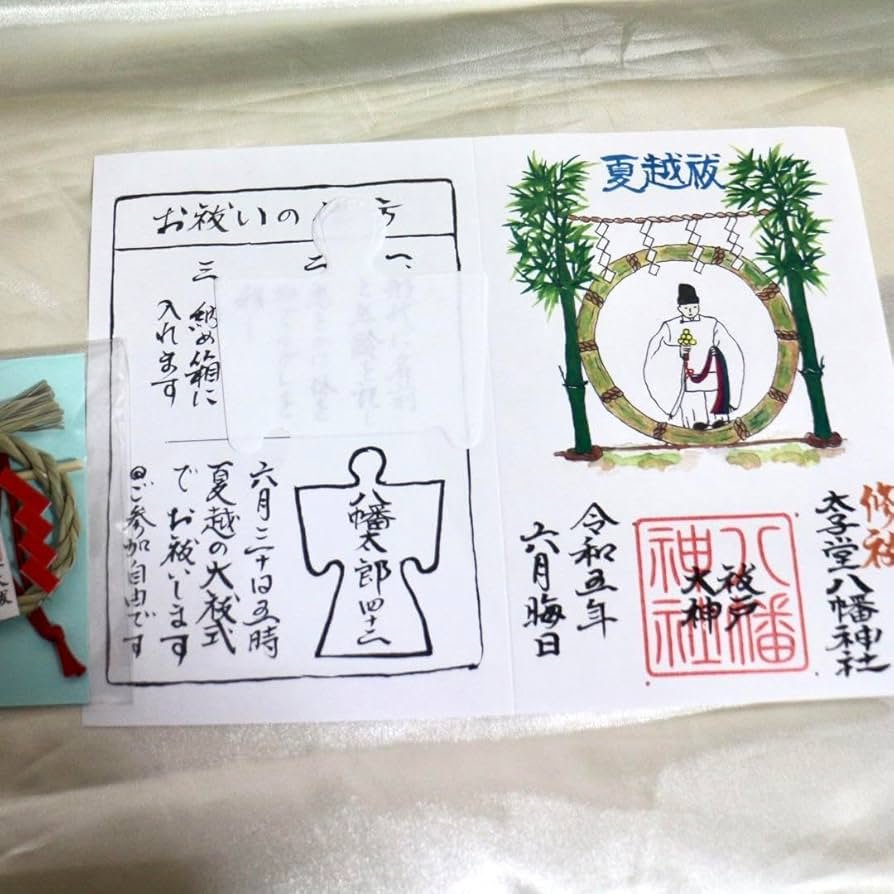 夏越祓
修祓
太子堂八幡神社
八幡
神社
祓戸
大神
令和五年
六月晦日
お祓いの 方
一、
二
三 納め箱に
入れます
八幡太郎 四十二
六月三十日五時
夏越の大祓式
でお祓いします
◎ご参加自由です